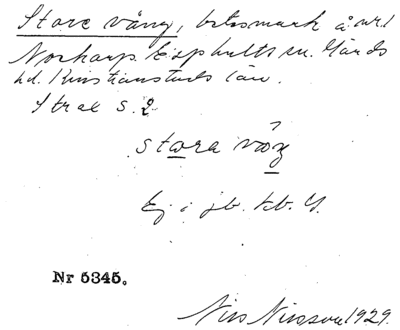 Stora vång, betesmark å nr 1
Norharp Eisphults sn. Gärds
hd. Kristianstads län.
Strax s. 2
stɷra vöŋ
Ej i jb. kb. Y.
Nr 5345.
Nils Nilsson 1929.